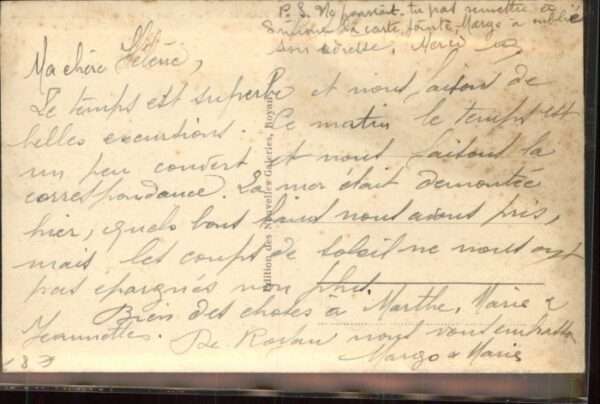 P. S. Ne pourrait-tu pas remettre à
Simone la carte jointe, Margo a oublié
son adresse, Merci
Ma chère Hélène,
Le temps est superbe et nous faisons de
belles excursions. Ce matin le temps est
un peu couvert et nous faisons la
correspondance. La mer était démontée
hier, quels bons bains nous avons pris,
mais les coups de soleil ne nous ont
pas épargnés non plus.
Bien des choses à Marthe, Marie &
Jeannette. De Royan nous vous embrassons
Margo & Marie
Edition des Nouvelles Galeries, Royan